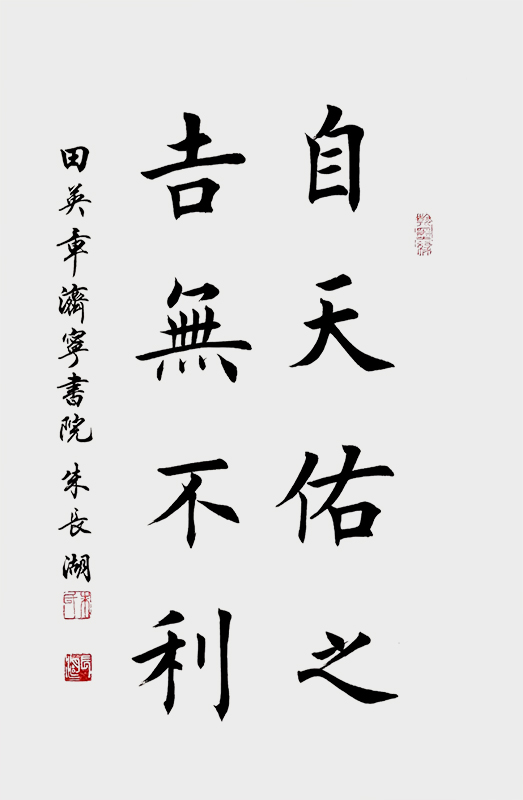 自天佑之
吉無不利
田英章濟寧書院 朱長湖